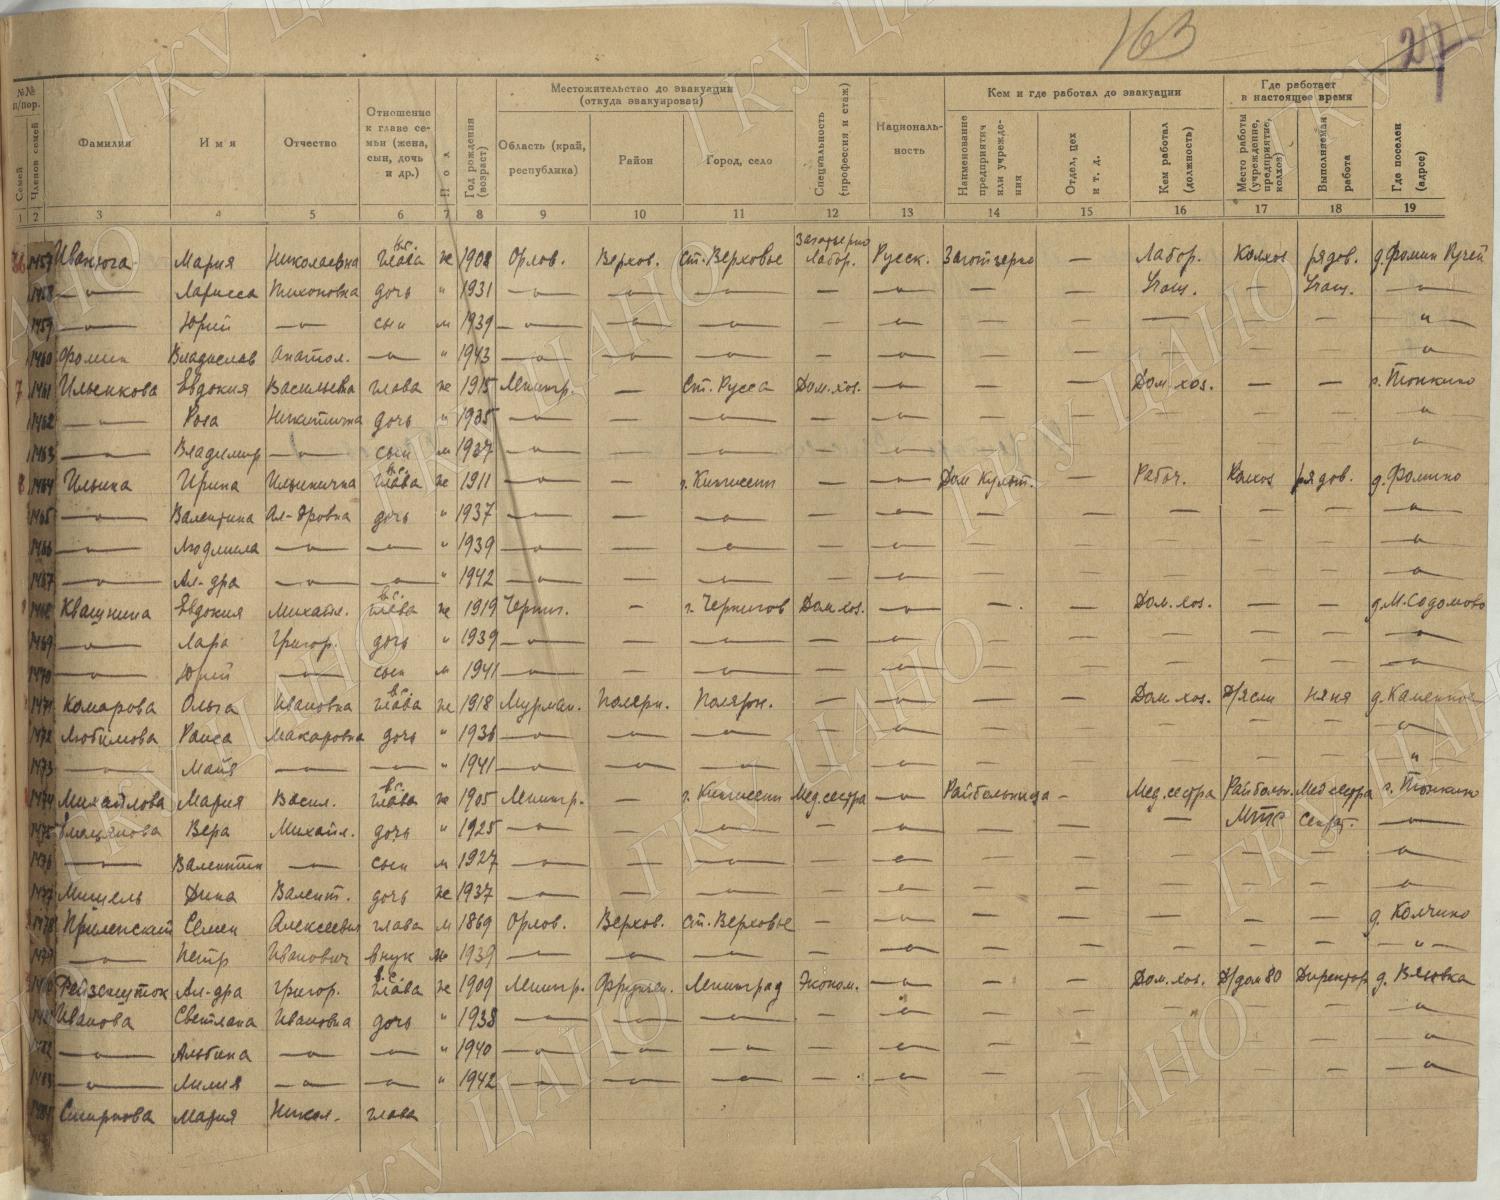 163
27
№№ п/пор.
Семей
Членов семей
Фамилия
Имя
Отчество
Отношение к главе семьи (жена, сын, дочь и др.)
Пол
Год рождения (возраст)
Местожительство до эвакуации (откуда эвакуирован)
Область (край, республика)
Район
Город, село
Специальность (профессия и стаж)
Националь-ность
Кем и где работал до эвакуации
Наименование предприятия или учреждения
Отдел, цех и т. д.
Кем работал (должность)
Где работает в настоящее время
Место работы (учреждение, предприятие, колхоз)
Выполняемая работа
Где поселен (адрес)
1 2 3 4 5 6 7 8 9 10 11 12 13 14 15 16 17 18 19
1457 Иванюга Мария Николаевна в.с. глава ж 1908 Орлов. Верхов. ст. Верховье Заготзерно Лабор. Русск. Заготзерно — Лабор. Колхоз рядов. д. Фомин Ручей
1458 —"— Ларисса Тихоновна дочь " 1931 —"— —"— —"— — —"— — — Учащ. — Учащ. —"—
1459 —"— Юрий —"— сын м 1939 —"— —"— —"— — —"— — — — — — "
1460 Фомин Владислав Анатол. —"— " 1943 —"— —"— —"— — —"— — — — — — "
7 1461 Ильенкова Евдокия Васильевна глава ж 1915 Ленингр. — Ст. Русса Дом. хоз. —"— — — Дом. хоз. — — с. Тонкино
1462 —"— Роза Никитична дочь " 1935 —"— — —"— — —"— — — — — — "
1463 —"— Владимир —"— сын м 1937 —"— — —"— — —"— — — — "
8 1464 Ильина Ирина Ильинична в.с. глава ж 1911 —"— — г. Кингисепп — —"— Дом Культ. — Рабоч. Колхоз рядов. д. Фомино
1465 —"— Валентина Ал-дровна дочь " 1937 —"— — —"— — —"— — — — — — —"—
1466 —"— Людмила —"— —"— " 1939 —"— — —"— — —"— — — — — —"—
1467 —"— Ал-дра —"— —"— " 1942 —"— — —"— — —"— — — — — —"—
1468 Квашнина Евдокия Михайл. в.с. глава ж 1919 Черниг. — г. Чернигов Дом. хоз. —"— — — Дом. хоз. — — д. М. Содомово
1469 —"— Лара Григор. дочь " 1939 —"— — —"— — —"— — — — — — —"—
1470 —"— Юрий —"— сын м 1941 —"— — —"— — —"— — — — — —"—
1471 Комарова Ольга Ивановна в.с. глава ж 1918 Мурман. Полярн. Полярн. — —"— — — Дом. хоз. Д/ясли няня д. Каменное
1472 Любимова Раиса Макаровна дочь " 1936 —"— —"— —"— — —"— — — — — —"—
1473 —"— Майя —"— —"— " 1941 —"— —"— —"— — —"— — — "
1474 Михайлова Мария Васил. в.с. глава ж 1905 Ленингр. — г. Кингисепп Мед. сестра —"— Райбольница — Мед. сестра Райбольн. Мед сестра с. Тонкино
1475 Вера Михайл. дочь " 1925 —"— — —"— — —"— — — — МТС Секрет. —"—
1476 —"— Валентин —"— сын м 1927 —"— — —"— — —"— — — — — —"—
1477 Мишель Дина Валент. дочь ж 1937 —"— — —"— — —"— — — — — — —"—
1478 Приленский Семен Алексеевич глава м 1869 Орлов. Верхов. ст. Верховье — —"— — — — — — д. Колчино
1479 —"— Петр Иванович внук м 1939 —"— — —"— — —"— — — — — — —"—
1480 Рейзентюк Ал-дра Григор. в.с. глава ж 1909 Ленингр. Фрунзен. Ленинград Эконом. —"— — — Дом. хоз. Д/дом 80 Директор д. Вязовка
1481 Иванова Светлана Ивановна дочь " 1938 —"— —"— —"— — —"— — — — — — —"—
1482 —"— Альбина —"— —"— " 1940 —"— —"— —"— — —"— — — — — —"—
1483 —"— Лилия —"— —"— " 1942 —"— —"— —"— — —"— — — — — — —"—
1484 Смирнова Мария Никол. глава
ГКУ ЦАНО